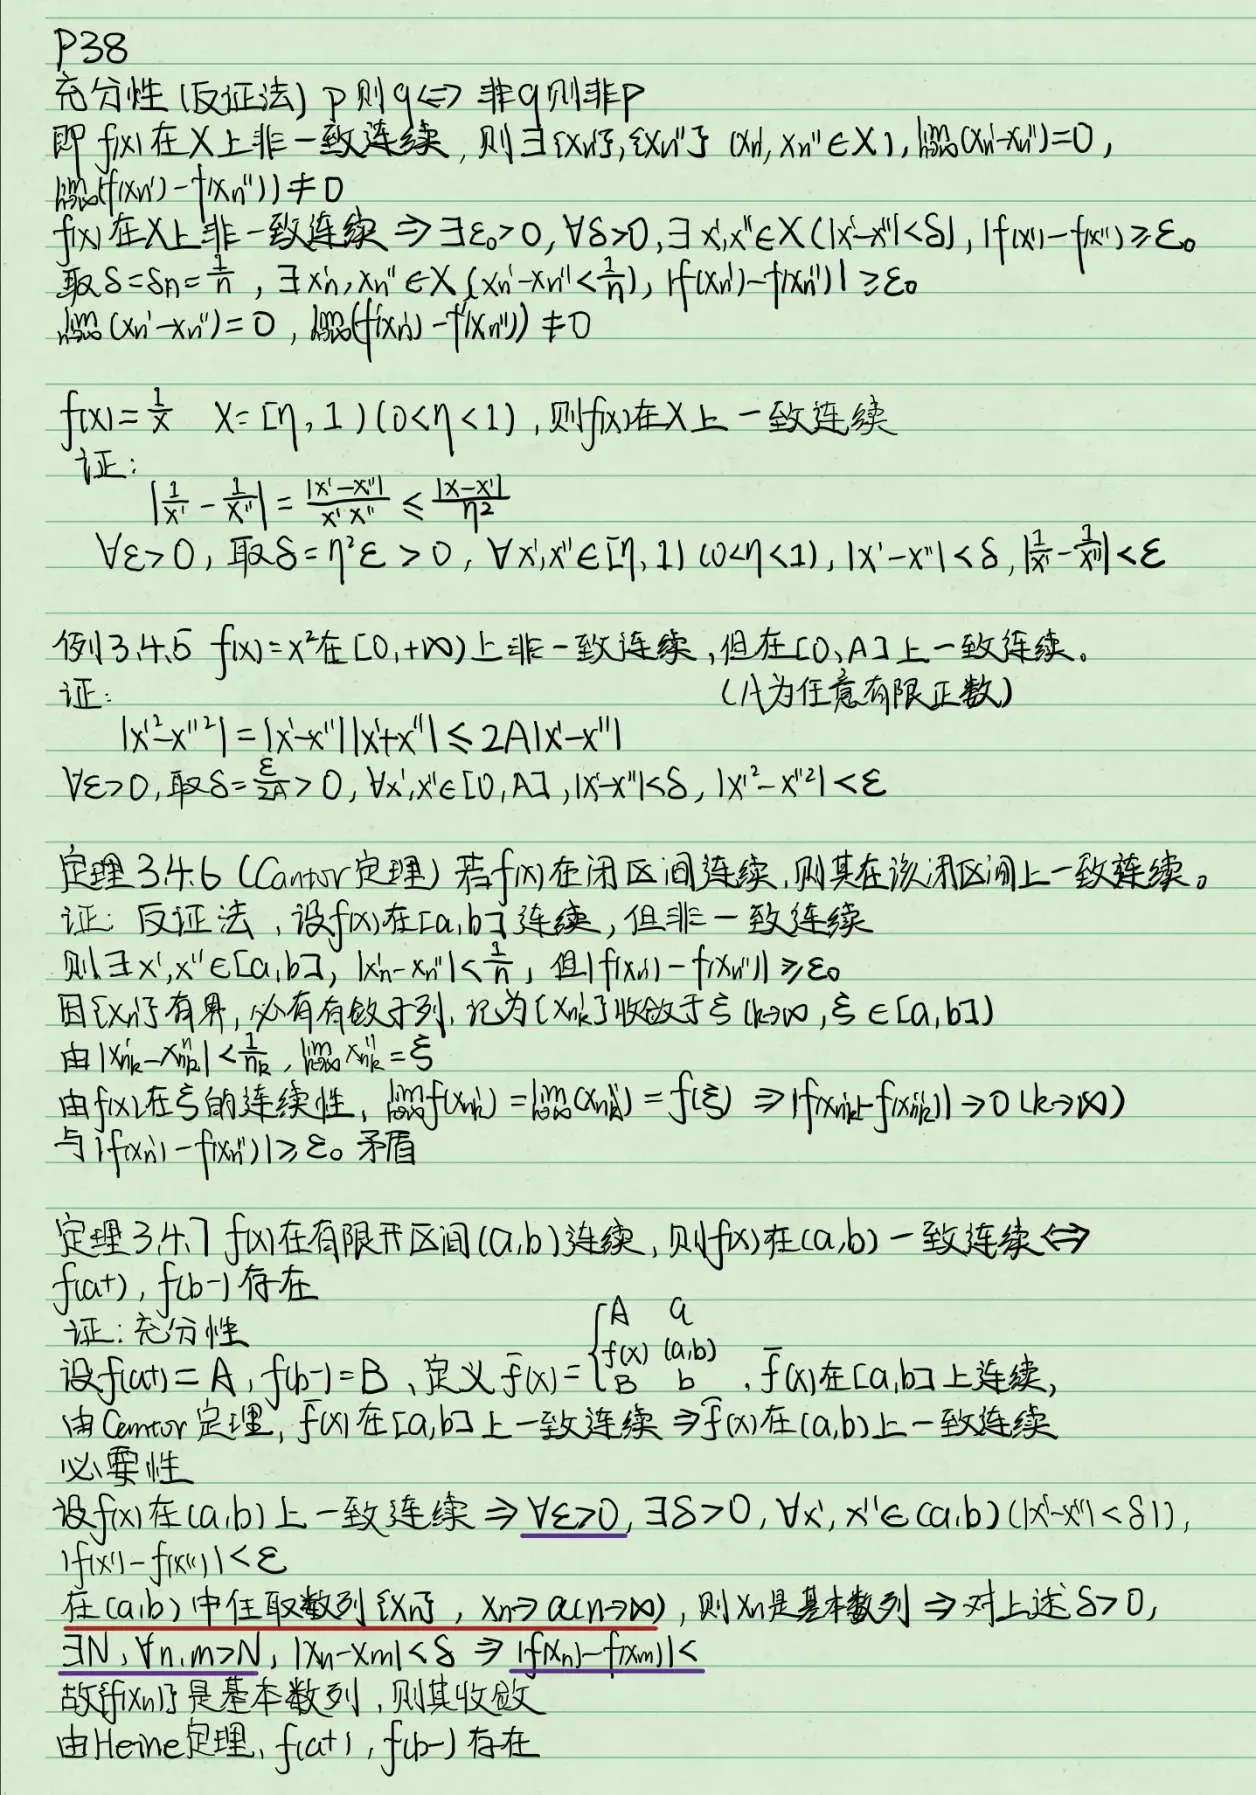 P38
充分性(反证法) p则q⇔ 非q则非p
即f(x)在X上非一致连续,则∃{xn'},{xn''} (xn', xn''∈X), lim n→∞(xn'-xn'')=0,
lim n→∞(f(xn')-f(xn''))≠0
f(x)在X上非一致连续⇒∃ε₀>0, ∀δ>0, ∃x',x''∈X(|x'-x''|<δ), |f(x')-f(x'')|≥ε₀
取δ=δn=1/n , ∃xn', xn''∈X (xn'-xn''<1/n), |f(xn')-f(xn'')|≥ε₀
lim n→∞(xn'-xn'')=0, lim n→∞(f(xn')-f(xn''))≠0
f(x)=1/x X=[η, 1) (0<η<1) ,则f(x)在X上一致连续
证:
|1/x' - 1/x''| = |x'-x''|/x'x'' ≤ |x-x'|/η²
∀ε>0, 取δ=η²ε>0, ∀x',x''∈[η, 1) (0<η<1), |x'-x''|<δ, |1/x'-1/x''|<ε
例3.4.5 f(x)=x²在[0,+∞)上非一致连续,但在[0,A]上一致连续。
证: (A为任意有限正数)
|x'²-x''²|=|x'-x''||x'+x''|≤2A|x'-x''|
∀ε>0,取δ=ε/2A>0, ∀x',x''∈[0,A], |x'-x''|<δ, |x'²-x''²|<ε
定理3.4.6 (Cantor定理) 若f(x)在闭区间连续,则其在该闭区间上一致连续。
证: 反证法 ,设f(x)在[a,b]连续,但非一致连续
则∃x',x''∈[a,b], |xn'-xn''|<1/n, 但|f(xn')-f(xn'')|≥ε₀
因{xn'}有界,必有有敛子列,记为{xnk'}收敛于ξ(k→∞,ξ∈[a,b])
由|xnk'-xnk''|<1/nk, lim k→∞ xnk''=ξ
由f(x)在ξ的连续性, lim k→∞f(xnk')=lim k→∞(xnk'')=f(ξ) ⇒|f(xnk')-f(xnk'')|→0(k→∞)
与|f(xn')-f(xn'')|≥ε₀ 矛盾
定理3.4.7 f(x)在有限开区间(a,b)连续,则f(x)在(a,b)一致连续⇔
f(a+), f(b-)存在
证:充分性
设f(a+)=A, f(b-)=B、定义f̄(x)={A a f(x) (a,b) B b , f̄(x)在[a,b]上连续,
由Cantor定理, f̄(x)在[a,b]上一致连续⇒f̄(x)在(a,b)上一致连续
必要性
设f(x)在(a,b)上一致连续⇒∀ε>0, ∃δ>0, ∀x', x''∈(a,b)(|x'-x''|<δ|),
|f(x')-f(x'')|<ε
在(a,b)中任取数列{xn}, xn→a(n→∞),则xn是基本数列⇒对上述δ>0,
∃N, ∀n,m>N, |xn-xm|<δ ⇒ |f(xn)-f(xm)|<
故{f(xn)}是基本数列,则其收敛
由Heine定理, f(a+), f(b-)存在